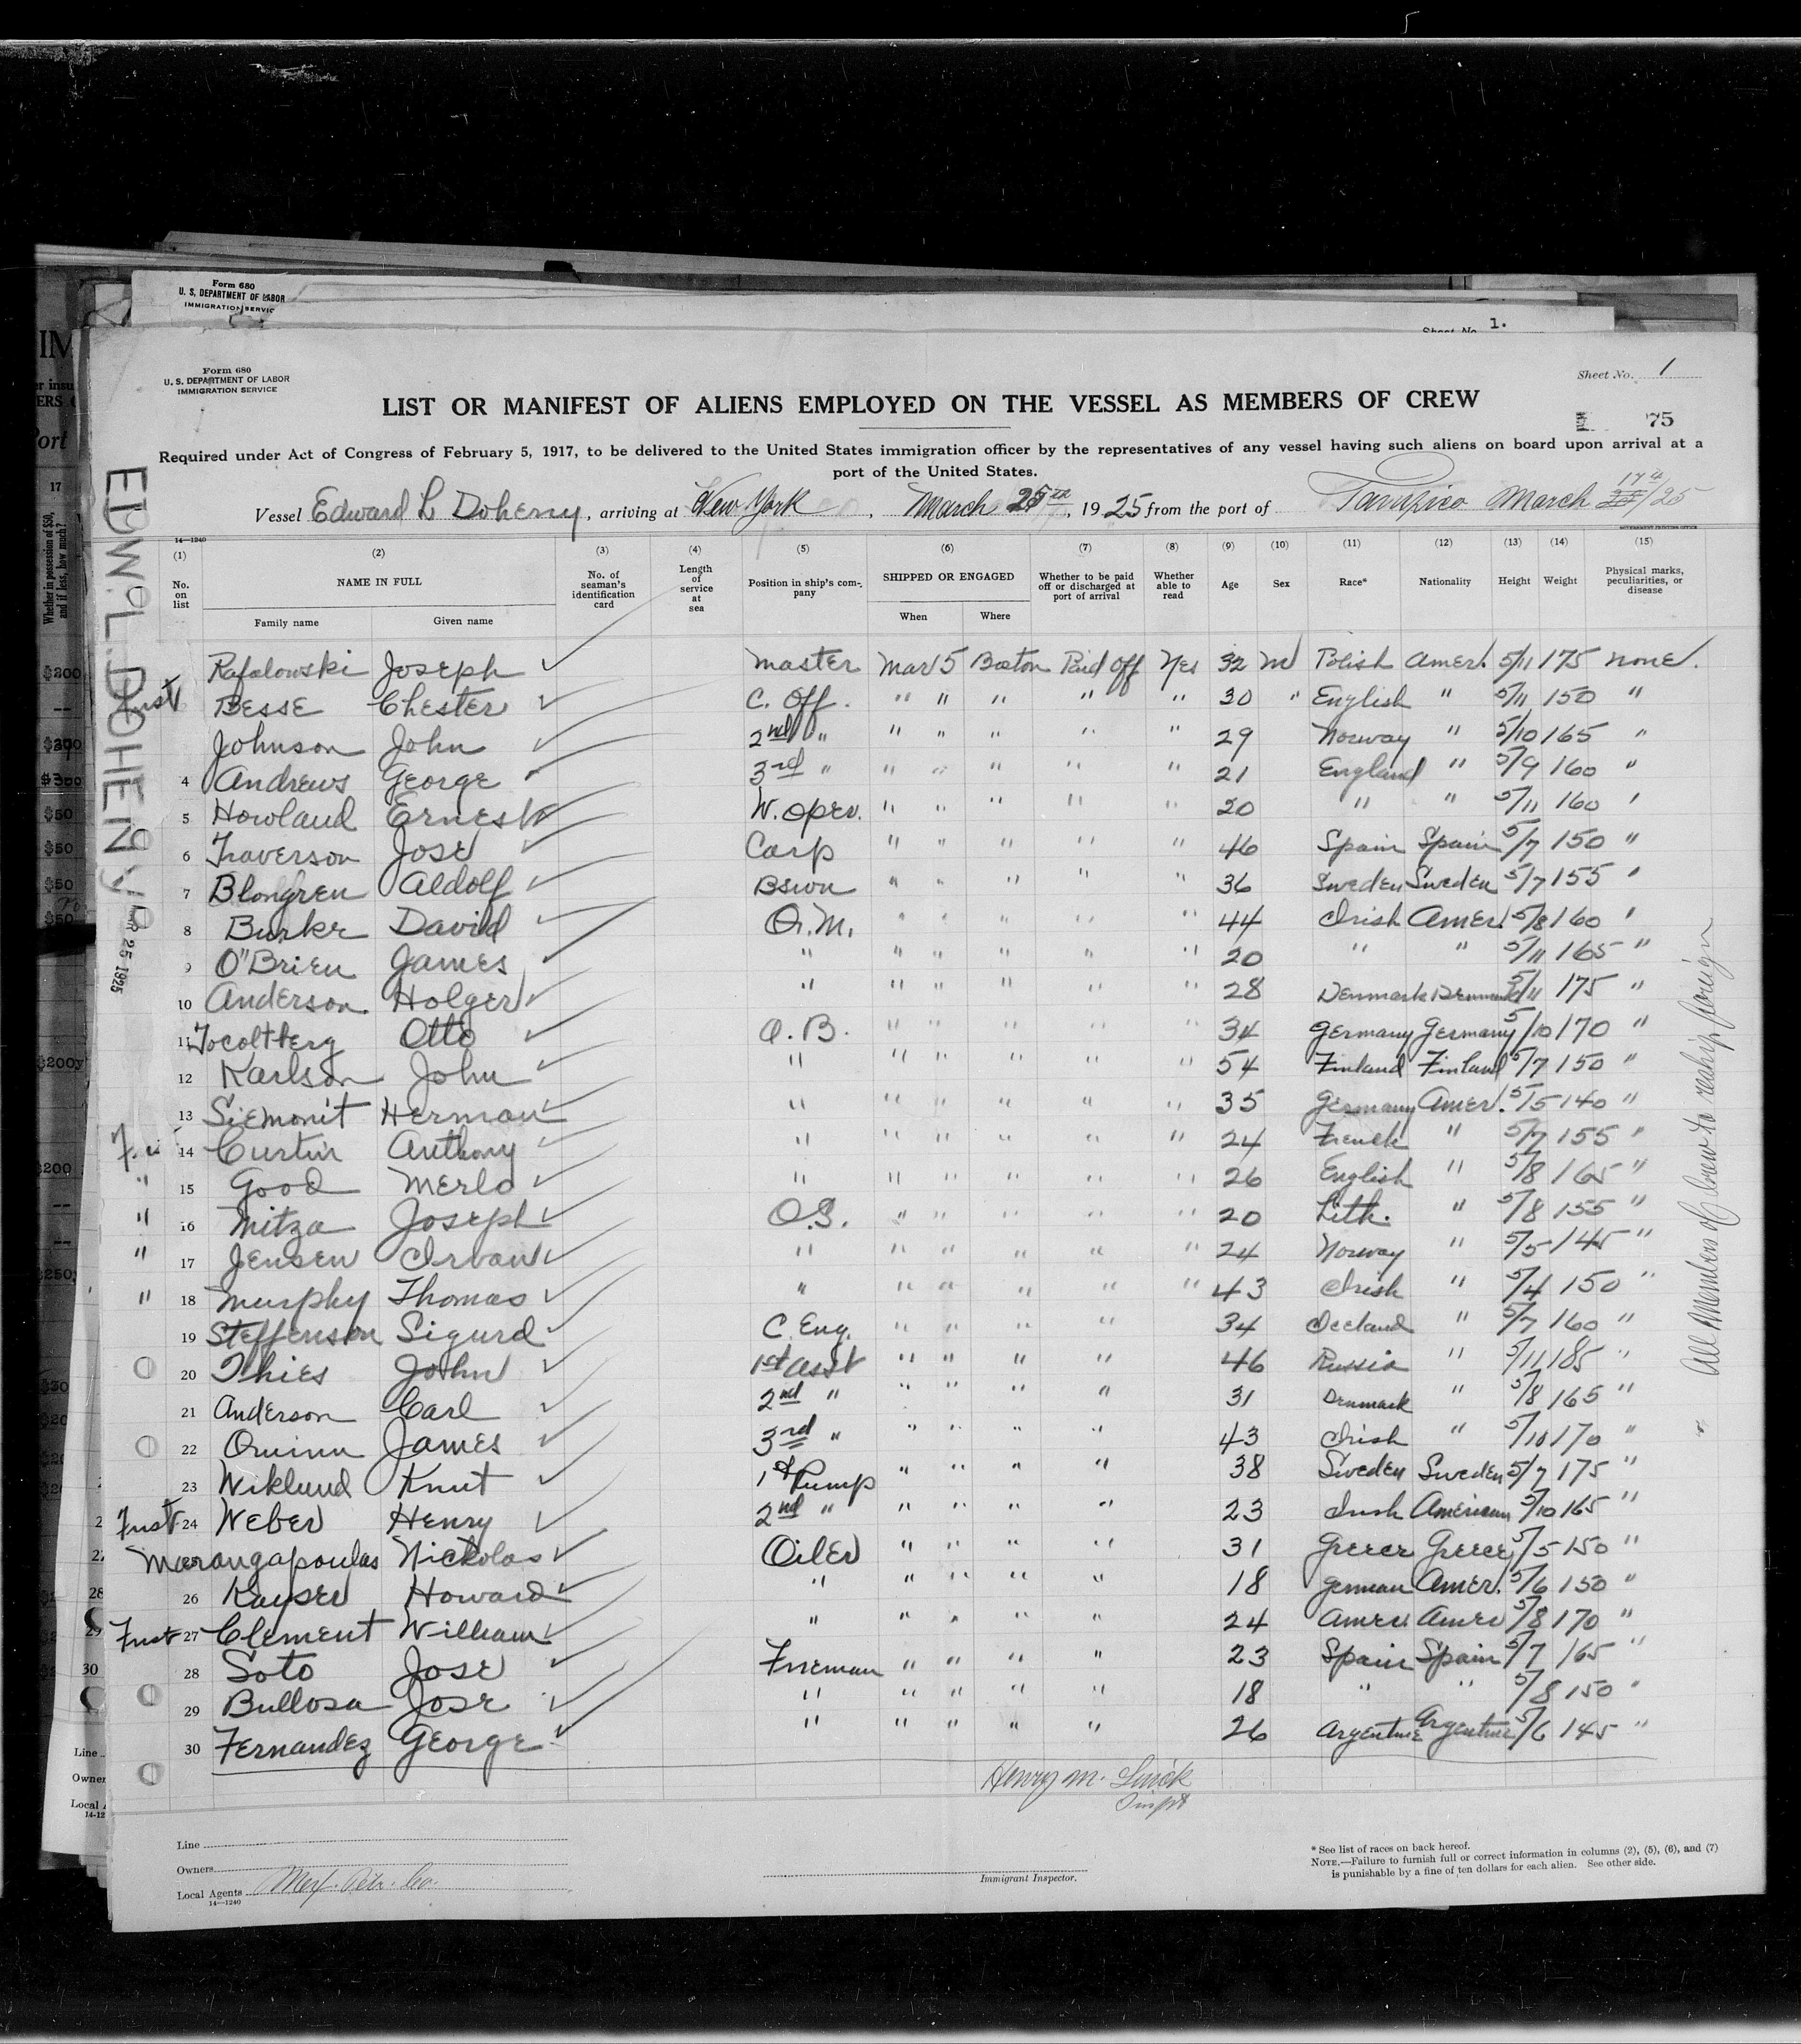 Form 680
U. S. DEPARTMENT OF LABOR
IMMIGRATION SERVIC
Sheet No. 1.
Form 680
U. S. DEPARTMENT OF LABOR
IMMIGRATION SERVICE
Sheet No. 1
LIST OR MANIFEST OF ALIENS EMPLOYED ON THE VESSEL AS MEMBERS OF CREW
75
Required under Act of Congress of February 5, 1917, to be delivered to the United States immigration officer by the representatives of any vessel having such aliens on board upon arrival at a
port of the United States.
Vessel Edward L Doheny, arriving at New York, March 25th, 1925 from the port of Tampico March 17th /25
14—1240
GOVERNMENT PRINTING OFFICE
(1) (2) (3) (4) (5) (6) (7) (8) (9) (10) (11) (12) (13) (14) (15)
No. on list NAME IN FULL No. of seaman's identification card Length of service at sea Position in ship's company SHIPPED OR ENGAGED Whether to be paid off or discharged at port of arrival Whether able to read Age Sex Race* Nationality Height Weight Physical marks, peculiarities, or disease
Family name Given name When Where
Rafalowski Joseph Master Mar 5 Boston Paid Off Yes 32 M Polish Amer. 5/11 175 none.
First Besse Chester C. Off. " " " " " 30 " English " 5/11 150 "
Johnson John 2nd " " " " " " 29 Norway " 5/10 165 "
4 Andrews George 3rd " " " " " " 21 England " 5/9 160 "
5 Howland Ernest W. Oper. " " " " " 20 " " 5/11 160 "
6 Traverson Jose Carp " " " " " 46 Spain Spain 5/7 150 "
7 Blongren Aldolf Bswn " " " " " 36 Sweden Sweden 5/7 155 "
8 Burke David Q.M. " " " " " 44 Irish Amer. 5/8 160 "
9 O"Brien James " " " " " " 20 " " 5/11 165 "
10 Anderson Holger " " " " " " 28 Denmark Denmark 5/11 175 "
11 Otto A.B. " " " " " 34 Germany Germany 5/10 170 "
12 Karlson John " " " " " " 54 Finland Finland 5/7 150 "
13 Siemonit Herman " " " " " " 35 Germany Amer. 5/5 140 "
14 Curtin Anthony " " " " " " 24 French " 5/7 155 "
" 15 Good Merlo " " " " " " 26 English " 5/8 165 "
" 16 Mitza Joseph O.S. " " " " " 20 Lith. " 5/8 155 "
" 17 Jensen Irvan " " " " " " 24 Norway " 5/5 145 "
" 18 Murphy Thomas " " " " " " 43 Irish " 5/4 150 "
19 Steffenson Sigurd C. Eng. " " " " 34 Iceland " 5/7 160 "
20 Thies John 1st Asst " " " " 46 Russia " 5/11 185 "
21 Anderson Carl 2nd " " " " " 31 Denmark " 5/8 165 "
22 Quinn James 3rd " " " " " 43 Irish " 5/10 170 "
23 Wiklund Knut 1st Pump " " " " 38 Sweden Sweden 5/7 175 "
First 24 Weber Henry 2nd " " " " " 23 Irish American 5/10 165 "
Marangapoulas Nickolas Oiler " " " " 31 Greece Greece 5/5 150 "
26 Kayser Howard " " " " " 18 German Amer. 5/6 150 "
First 27 Clement William " " " " " 24 Amer. Amer 5/8 170 "
28 Soto Jose Fireman " " " " 23 Spain Spain 5/7 165 "
29 Bullosa Jose " " " " " 18 " " 5/8 150 "
30 Fernandez George " " " " " 26 Argentine Argentine 5/6 145 "
Henry M.
EDW. L. DOHENY
MAR 25 1925
All Members of Crew to reship foreign
Line
Owners
Local Agents Mex. Pet. Co.
14—1240
Immigrant Inspector.
* See list of races on back hereof.
NOTE.—Failure to furnish full or correct information in columns (2), (5), (6), and (7)
is punishable by a fine of ten dollars for each alien. See other side.